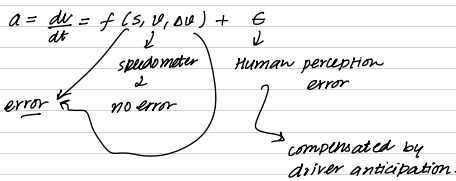 a = dv/dt = f(s, v, Δv) + ϵ
speedometer
Human perception
error
error
no error
compensated by
driver anticipation.